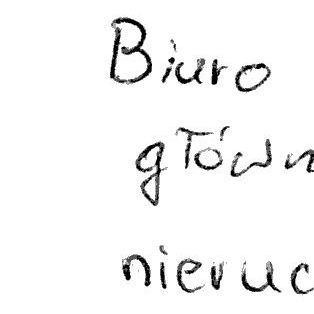 Biuro
główn
nieruc